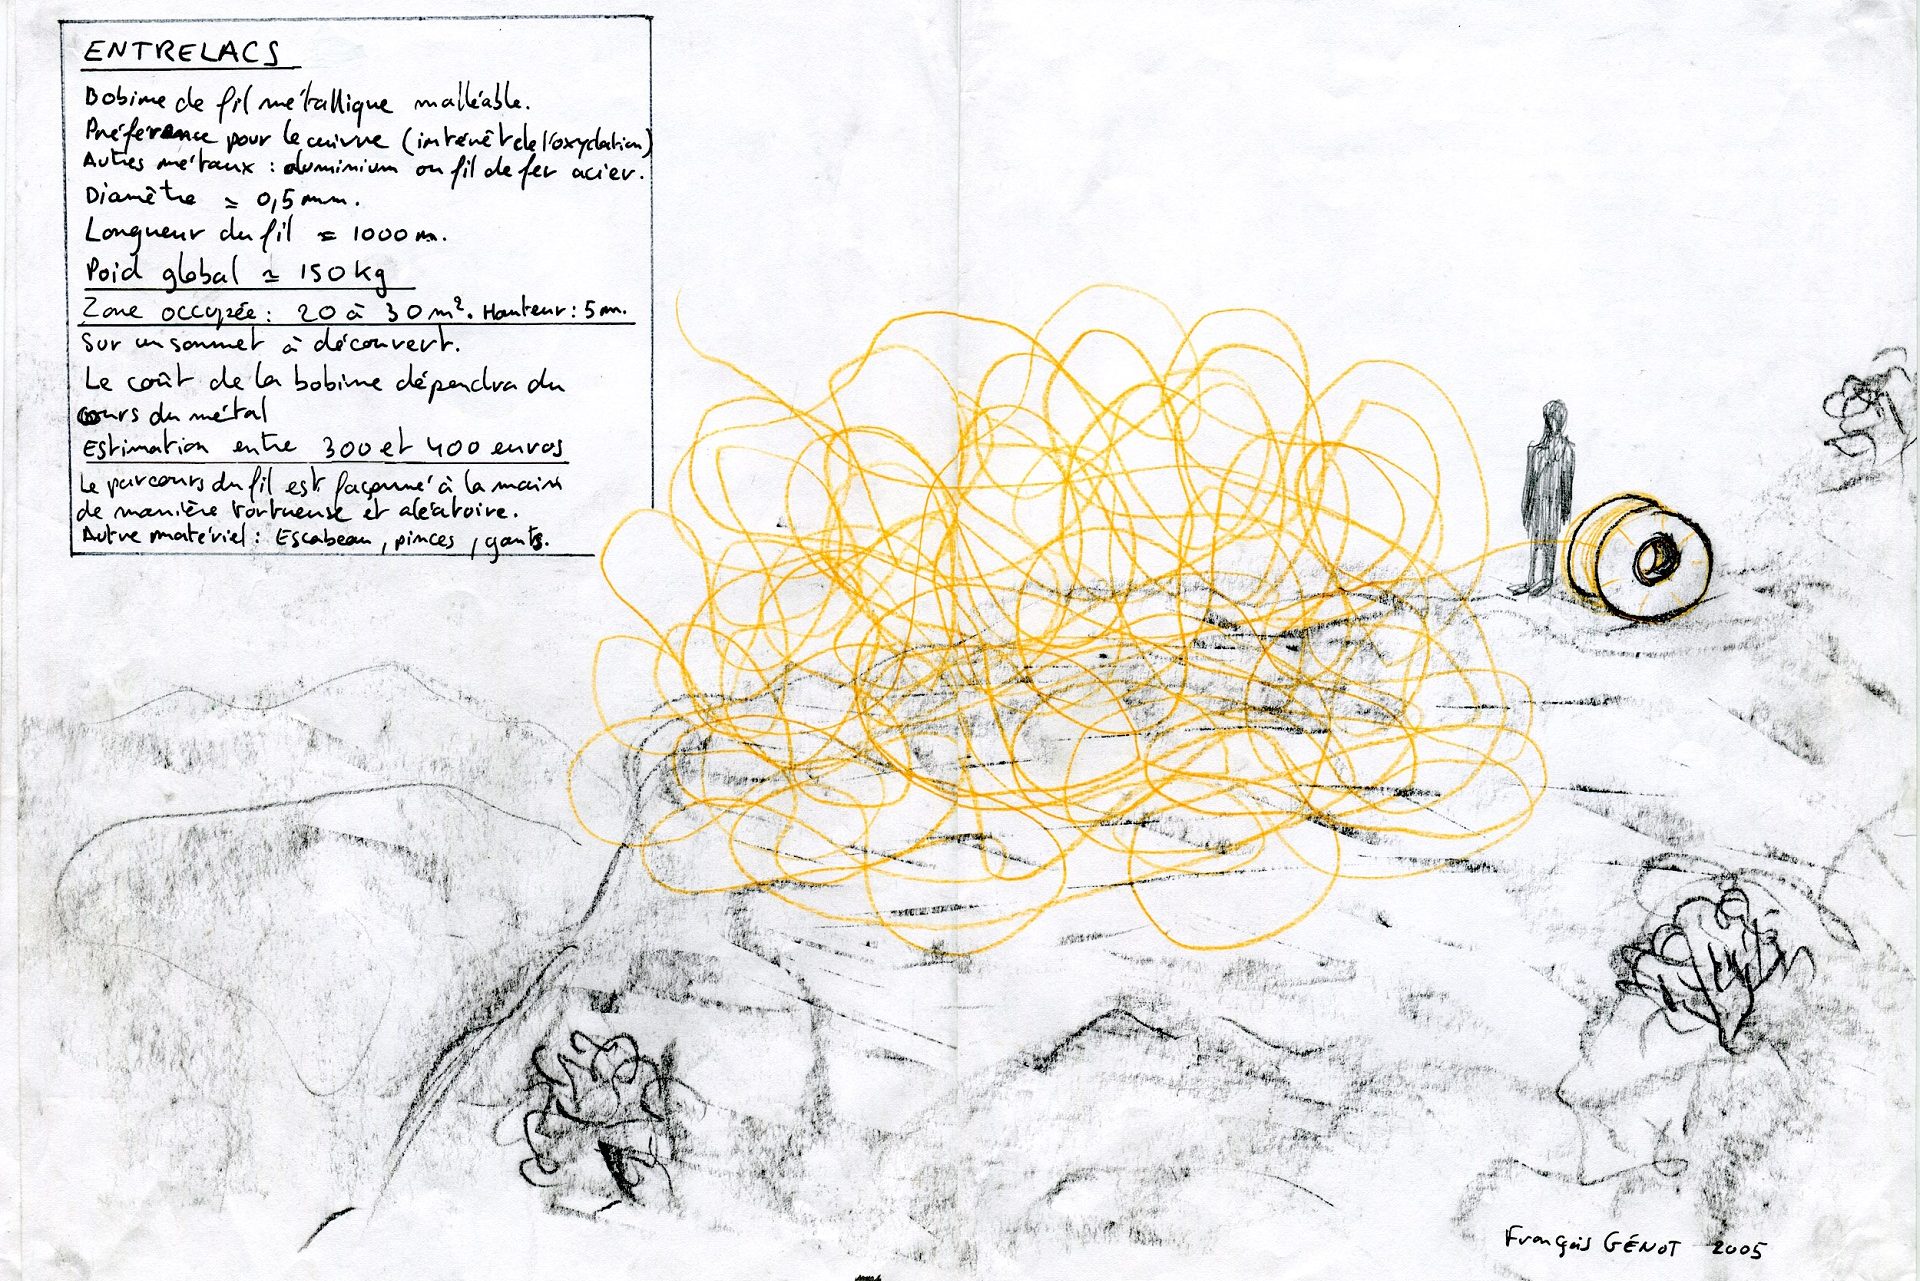 ENTRELACS
Bobine de fil métallique malléable.
Préférence pour le cuivre (intérêt de l'oxydation)
Autres métaux : aluminium ou fil de fer acier.
Diamêtre ≃ 0,5 mm.
Longueur du fil ≃ 1000 m.
Poid global ≃ 150 kg
Zone occupée : 20 à 30 m². Hauteur : 5 m.
Sur un sommet à découvert.
Le coût de la bobine dépendra du
cours du métal
Estimation entre 300 et 400 euros
Le parcours du fil est façonné à la main
de manière tortueuse et aléatoire.
Autre matériel : Escabeau, pinces, gants.
François GÉNOT 2005